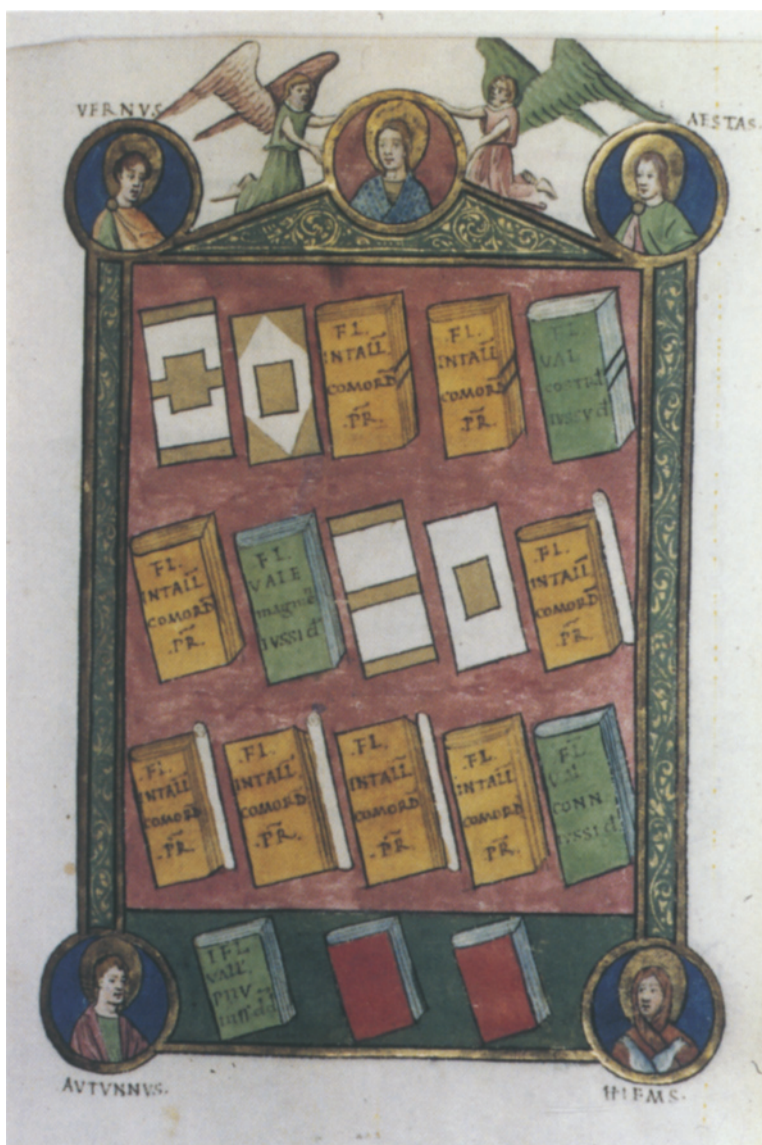 VERNVS
AESTAS.
.FL.
INTALL̄
COMORD̄
.PR̄.
.FL.
INTALL̄
COMORD̄
.PR̄.
FL.
VAL
.FL.
INTALL̄
COMORD̄
.PR̄.
FL.
VALE
magnē
IVSSI d̄
.FL.
INTALL̄
COMORD̄
.PR̄.
.FL.
INTALL̄
COMORD̄
.PR̄.
.FL.
INTALL̄
COMORD̄
.PR̄.
.FL.
INTALL̄
COMORD̄
.PR̄.
.FL.
INTALL̄
COMORD̄
.PR̄.
FL.
VAL
CONN
IVSSI d̄
FL.
VALE.
PRV
AVTVNNVS.
HIEMS.